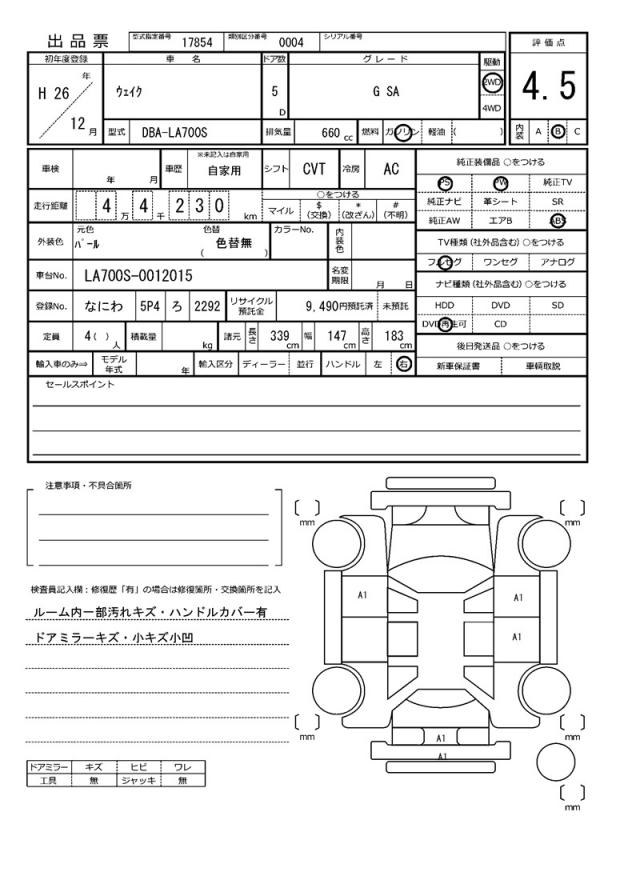 出品票 型式指定番号 17854 類別区分番号 0004 シリアル番号
評価点
4.5
内装 A B C
初年度登録 車名 ドア数 グレード 駆動
H 26 年 12 月
ウェイク 5 D G SA 2WD 4WD
型式 DBA-LA700S 排気量 660 cc 燃料 ガソリン 軽油 ( )
車検 年 月 車歴 ※未記入は自家用 自家用 シフト CVT 冷房 AC
走行距離 4 万 4 千 2 3 0 km
○をつける
マイル $(交換) *(改ざん) #(不明)
外装色 元色 パール 色替 色替無 ( ) カラーNo. 内装色
車台No. LA700S-0012015 名変期限 月 日
登録No. なにわ 5P4 ろ 2292 リサイクル預託金 9,490円預託済 未預託
定員 4( ) 人 積載量 kg 諸元 長さ 339 cm 幅 147 cm 高さ 183 cm
輸入車のみ⇒ モデル年式 年 輸入区分 ディーラー 並行 ハンドル 左 右
純正装備品 ○をつける
PS PW 純正TV
純正ナビ 革シート SR
純正AW エアB ABS
TV種類(社外品含む)○をつける
フルセグ ワンセグ アナログ
ナビ種類(社外品含む)○をつける
HDD DVD SD
DVD再生可 CD
後日発送品 ○をつける
新車保証書 車輌取説
セールスポイント
注意事項・不具合箇所
検査員記入欄：修復歴「有」の場合は修復箇所・交換箇所を記入
ルーム内一部汚れキズ・ハンドルカバー有
ドアミラーキズ・小キズ小凹
ドアミラー キズ ヒビ ワレ
工具 無 ジャッキ 無
mm mm
A1 A1
A1
mm mm
A1
A1
mm